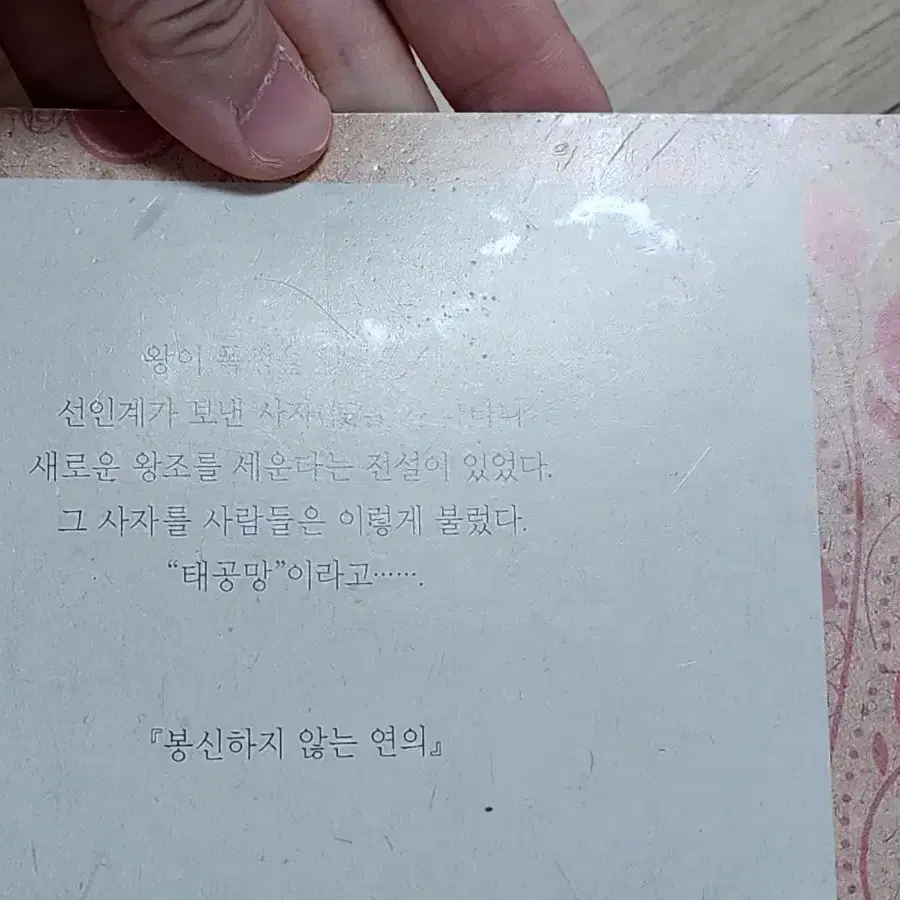 왕이
선인계가 보낸 사자
새로운 왕조를 세운다는 전설이 있었다.
그 사자를 사람들은 이렇게 불렀다.
“태공망”이라고…….
『봉신하지 않는 연의』